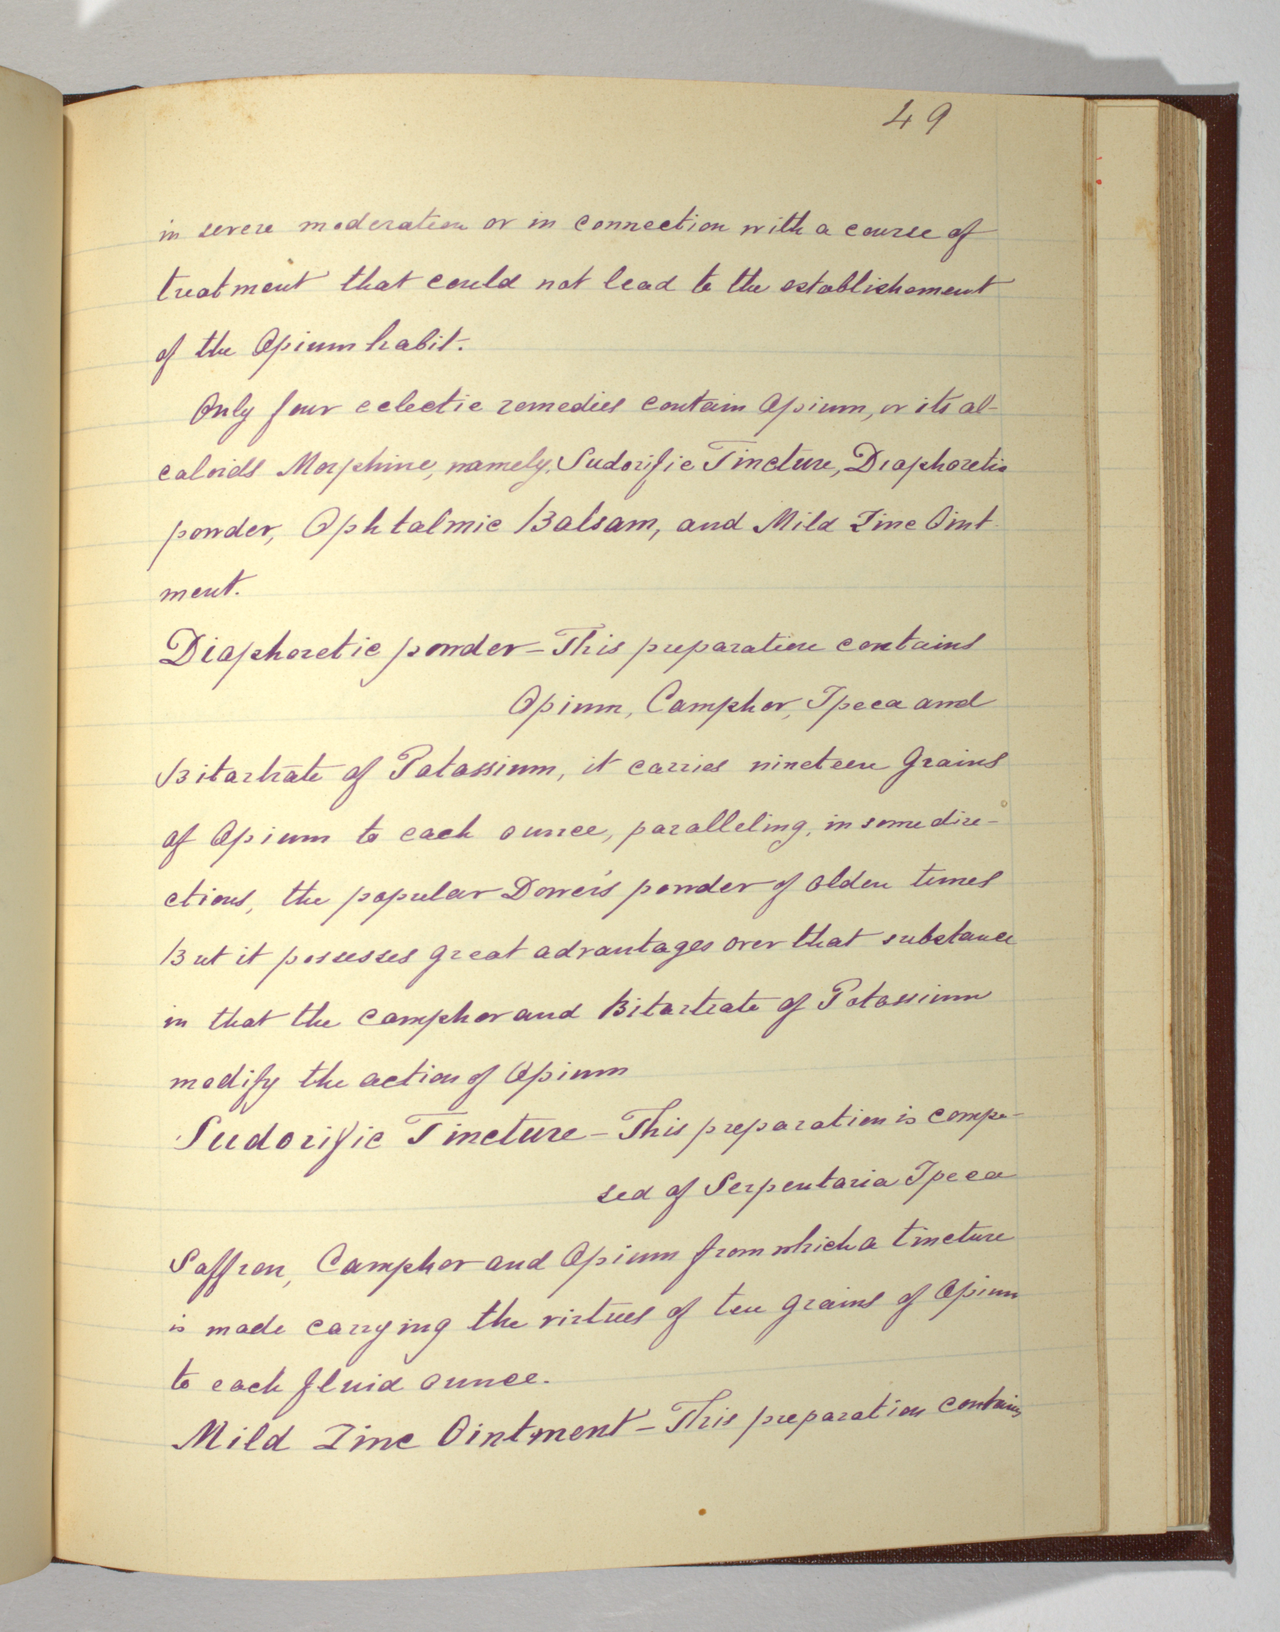 49
in severe moderation or in connection with a course of
treatment that could not lead to the establishement
of the Opium habit.
Only four eclectic remedies contain Opium, or its al-
caloids Morphine, namely, Sudorific Tincture, Diaphoretic
powder, Ophtalmic Balsam, and Mild Zinc Oint-
ment.
Diaphoretic powder – This preparation contains
Opium, Camphor, Ipeca and
Bitartrate of Potassium, it carries nineteen grains
of Opium to each ounce, paralleling, in some dire-
ctions, the popular Dower's powder of olden times
But it possesses great advantages over that substance
in that the camphor and Bitartrate of Potassium
modify the action of Opium
Sudorific Tincture – This preparation is compo-
sed of Serpentaria Ipeca
Saffron, Camphor and Opium from which a tincture
is made carrying the virtues of ten grains of Opium
to each fluid ounce.
Mild Zinc Ointment – This preparation contains